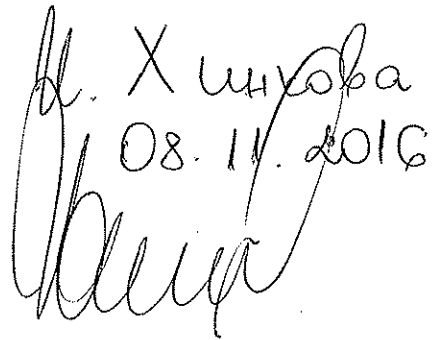 Н. Хинкова
08.11.2016